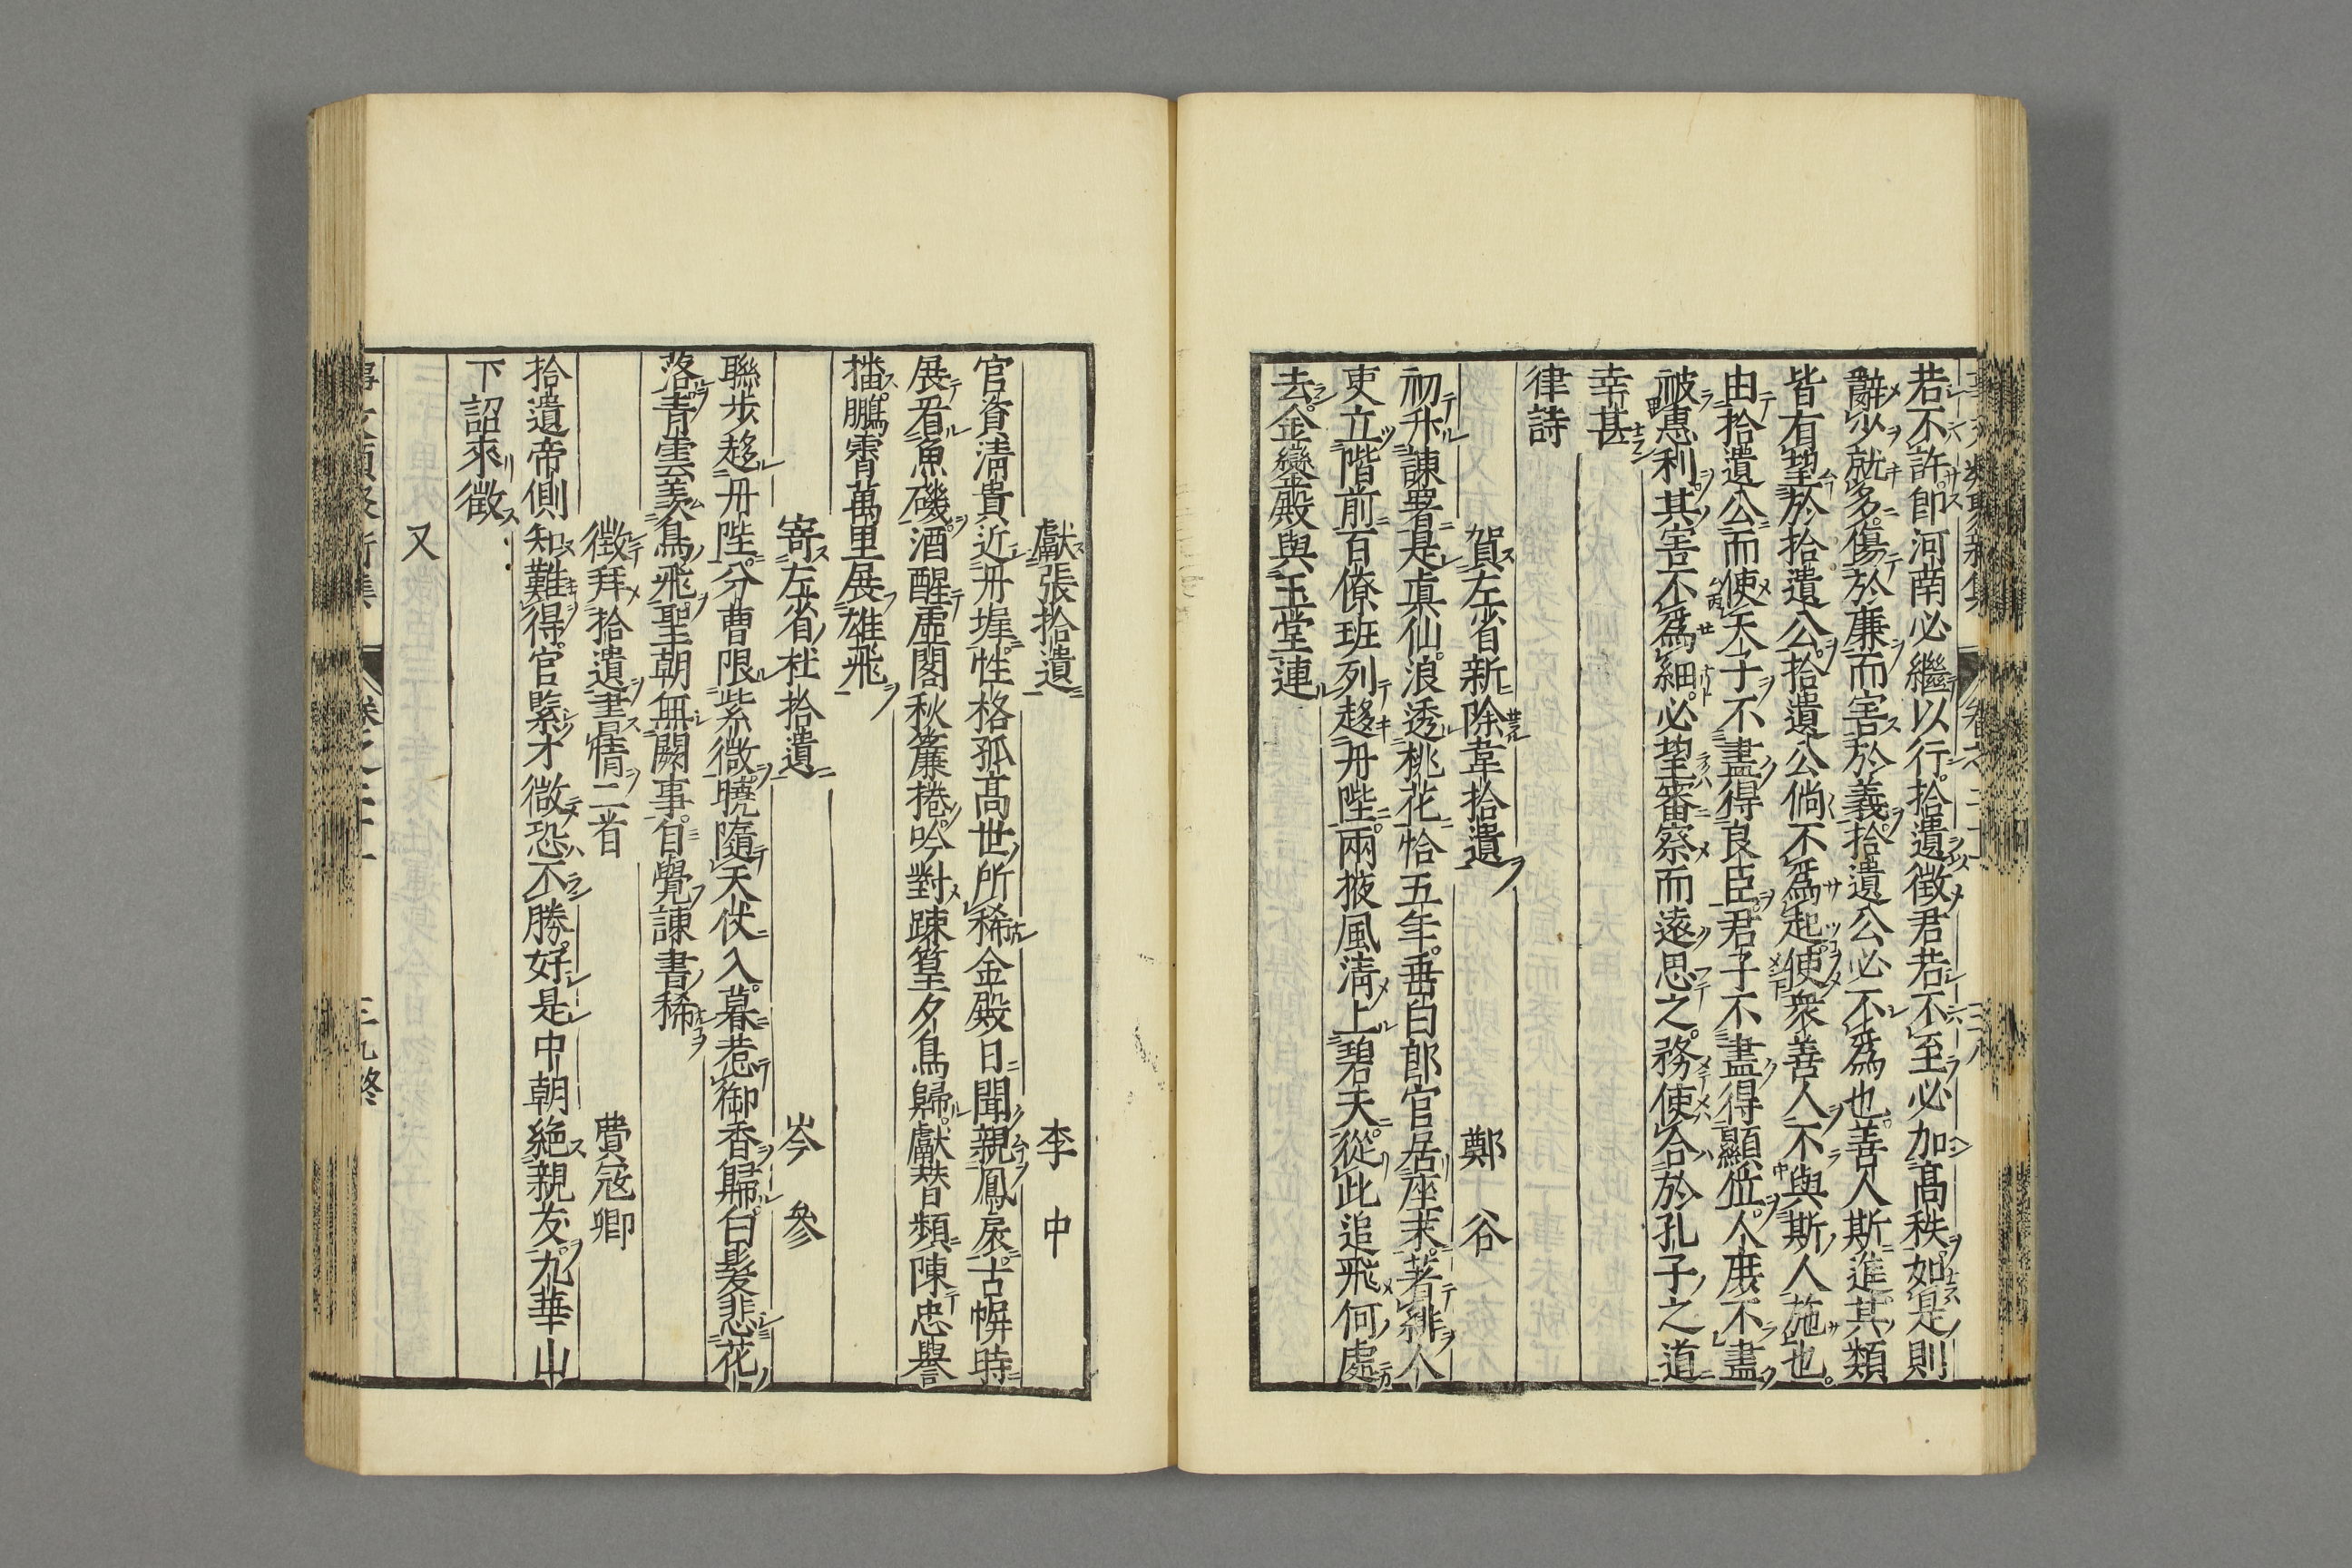 若不許即河南必繼以行拾遺徵君若不至必加高秩如是則
辭少就多傷於廉而害於義拾遺公必不爲也善人斯進其類
皆有望於拾遺公拾遺公倘不爲起使衆善人不與斯人施也
由拾遺公而使天子不盡得良臣君子不盡得顯位人庶不盡
被惠利其害不爲細必望審察而遠思之務使合於孔子之道
幸甚
律詩
賀左省新除韋拾遺 鄭谷
初升諫署是真仙浪透桃花恰五年垂白郎官居座末著緋人
吏立階前百僚班列趍丹陛兩掖風淸上碧天從此追飛何處
去金鑾殿與玉堂連
獻張拾遺 李中
官資淸貴近丹墀性格孤高世所稀金殿日聞親鳳扆古幈時
展看魚磯酒醒虛閣秋簾捲吟對踈篁夕鳥歸獻替頻陳忠譽
播鵬霄萬里展雄飛
寄左省杜拾遺 岑參
聯步趍丹陛分曹限紫微曉隨天仗入暮惹御香歸白髮悲花
落青雲羨鳥飛聖朝無闕事自覺諫書稀
徵拜拾遺書情二首 費冠卿
拾遺帝側知難得官緊才微恐不勝好是中朝絶親友九華山
下詔來徵
又